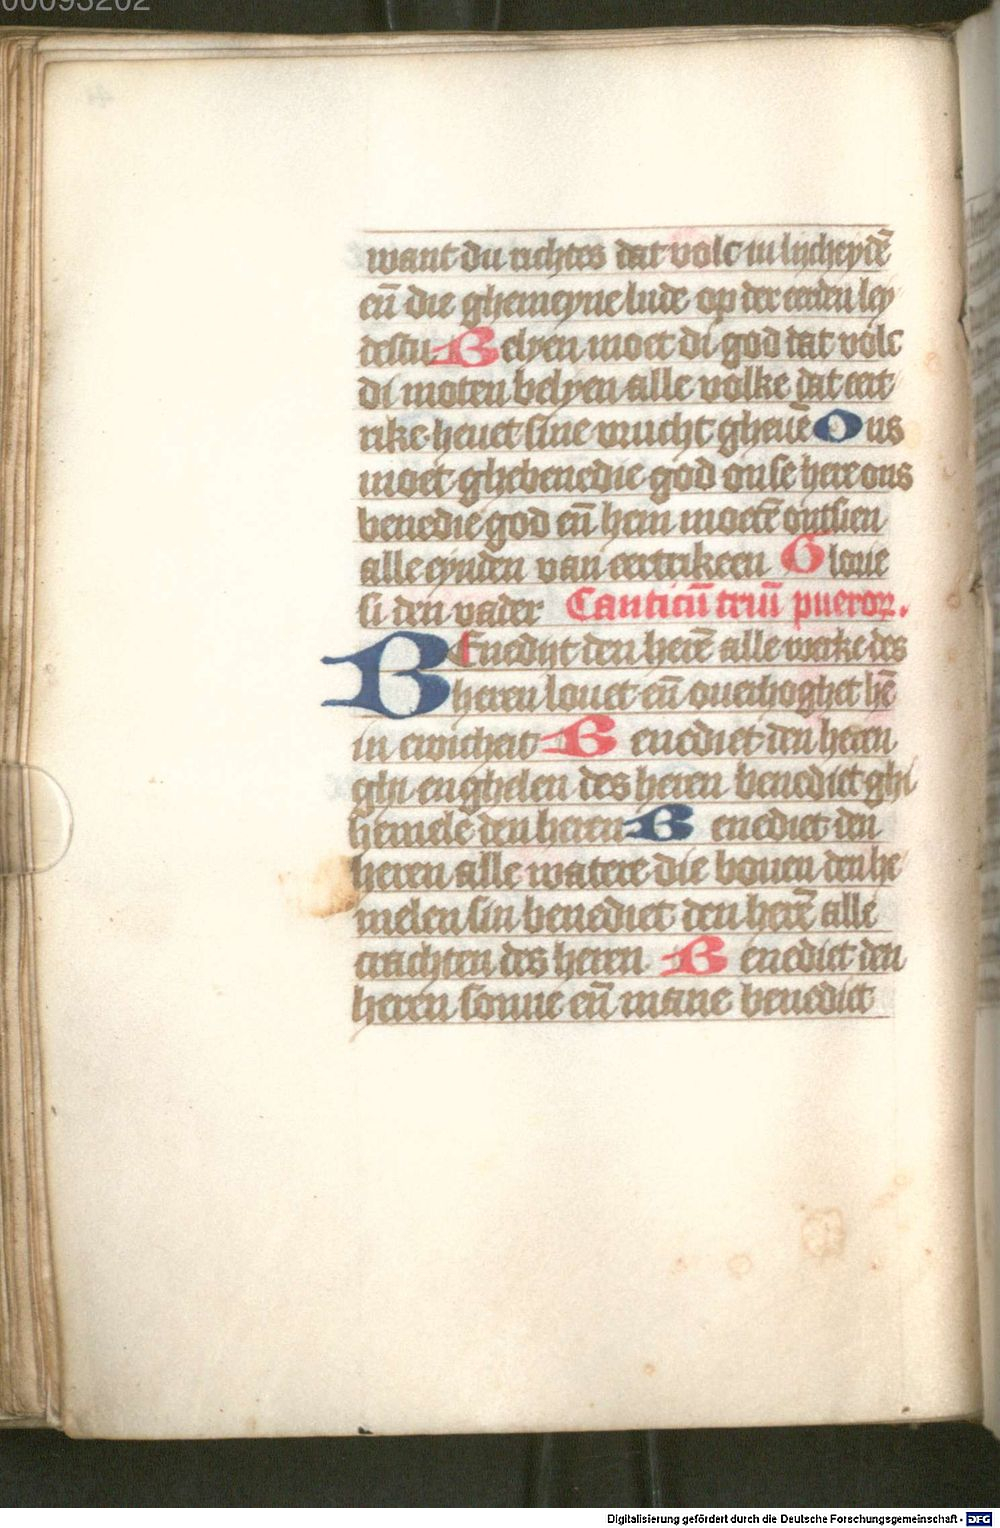 00093202
want du richtes dat volc in lijcheydē
eñ die ghemeyne lude op der eerden ley
destu Belyen moet di god dat volc
di moten belyen alle volke dat eert
rike heuet sine vrucht gheuē Ons
moet ghebenedie god onse here ons
benedie god eñ hem moetē ontsien
alle eynden van eertrikeen Glorie
si den vader Canticū triū pueror.
BEnedijt den herē alle werke des
heren louet eñ ouerhoghet hē
in ewicheit Benediet den heren
ghi enghelen des heren benediet ghi
hemelē den heren Benediet den
heren alle watere die bouen den he
melen sin benediet den herē alle
crachten des heren Benediet den
heren sonne eñ mane benediet
Digitalisierung gefördert durch die Deutsche Forschungsgemeinschaft - DFG